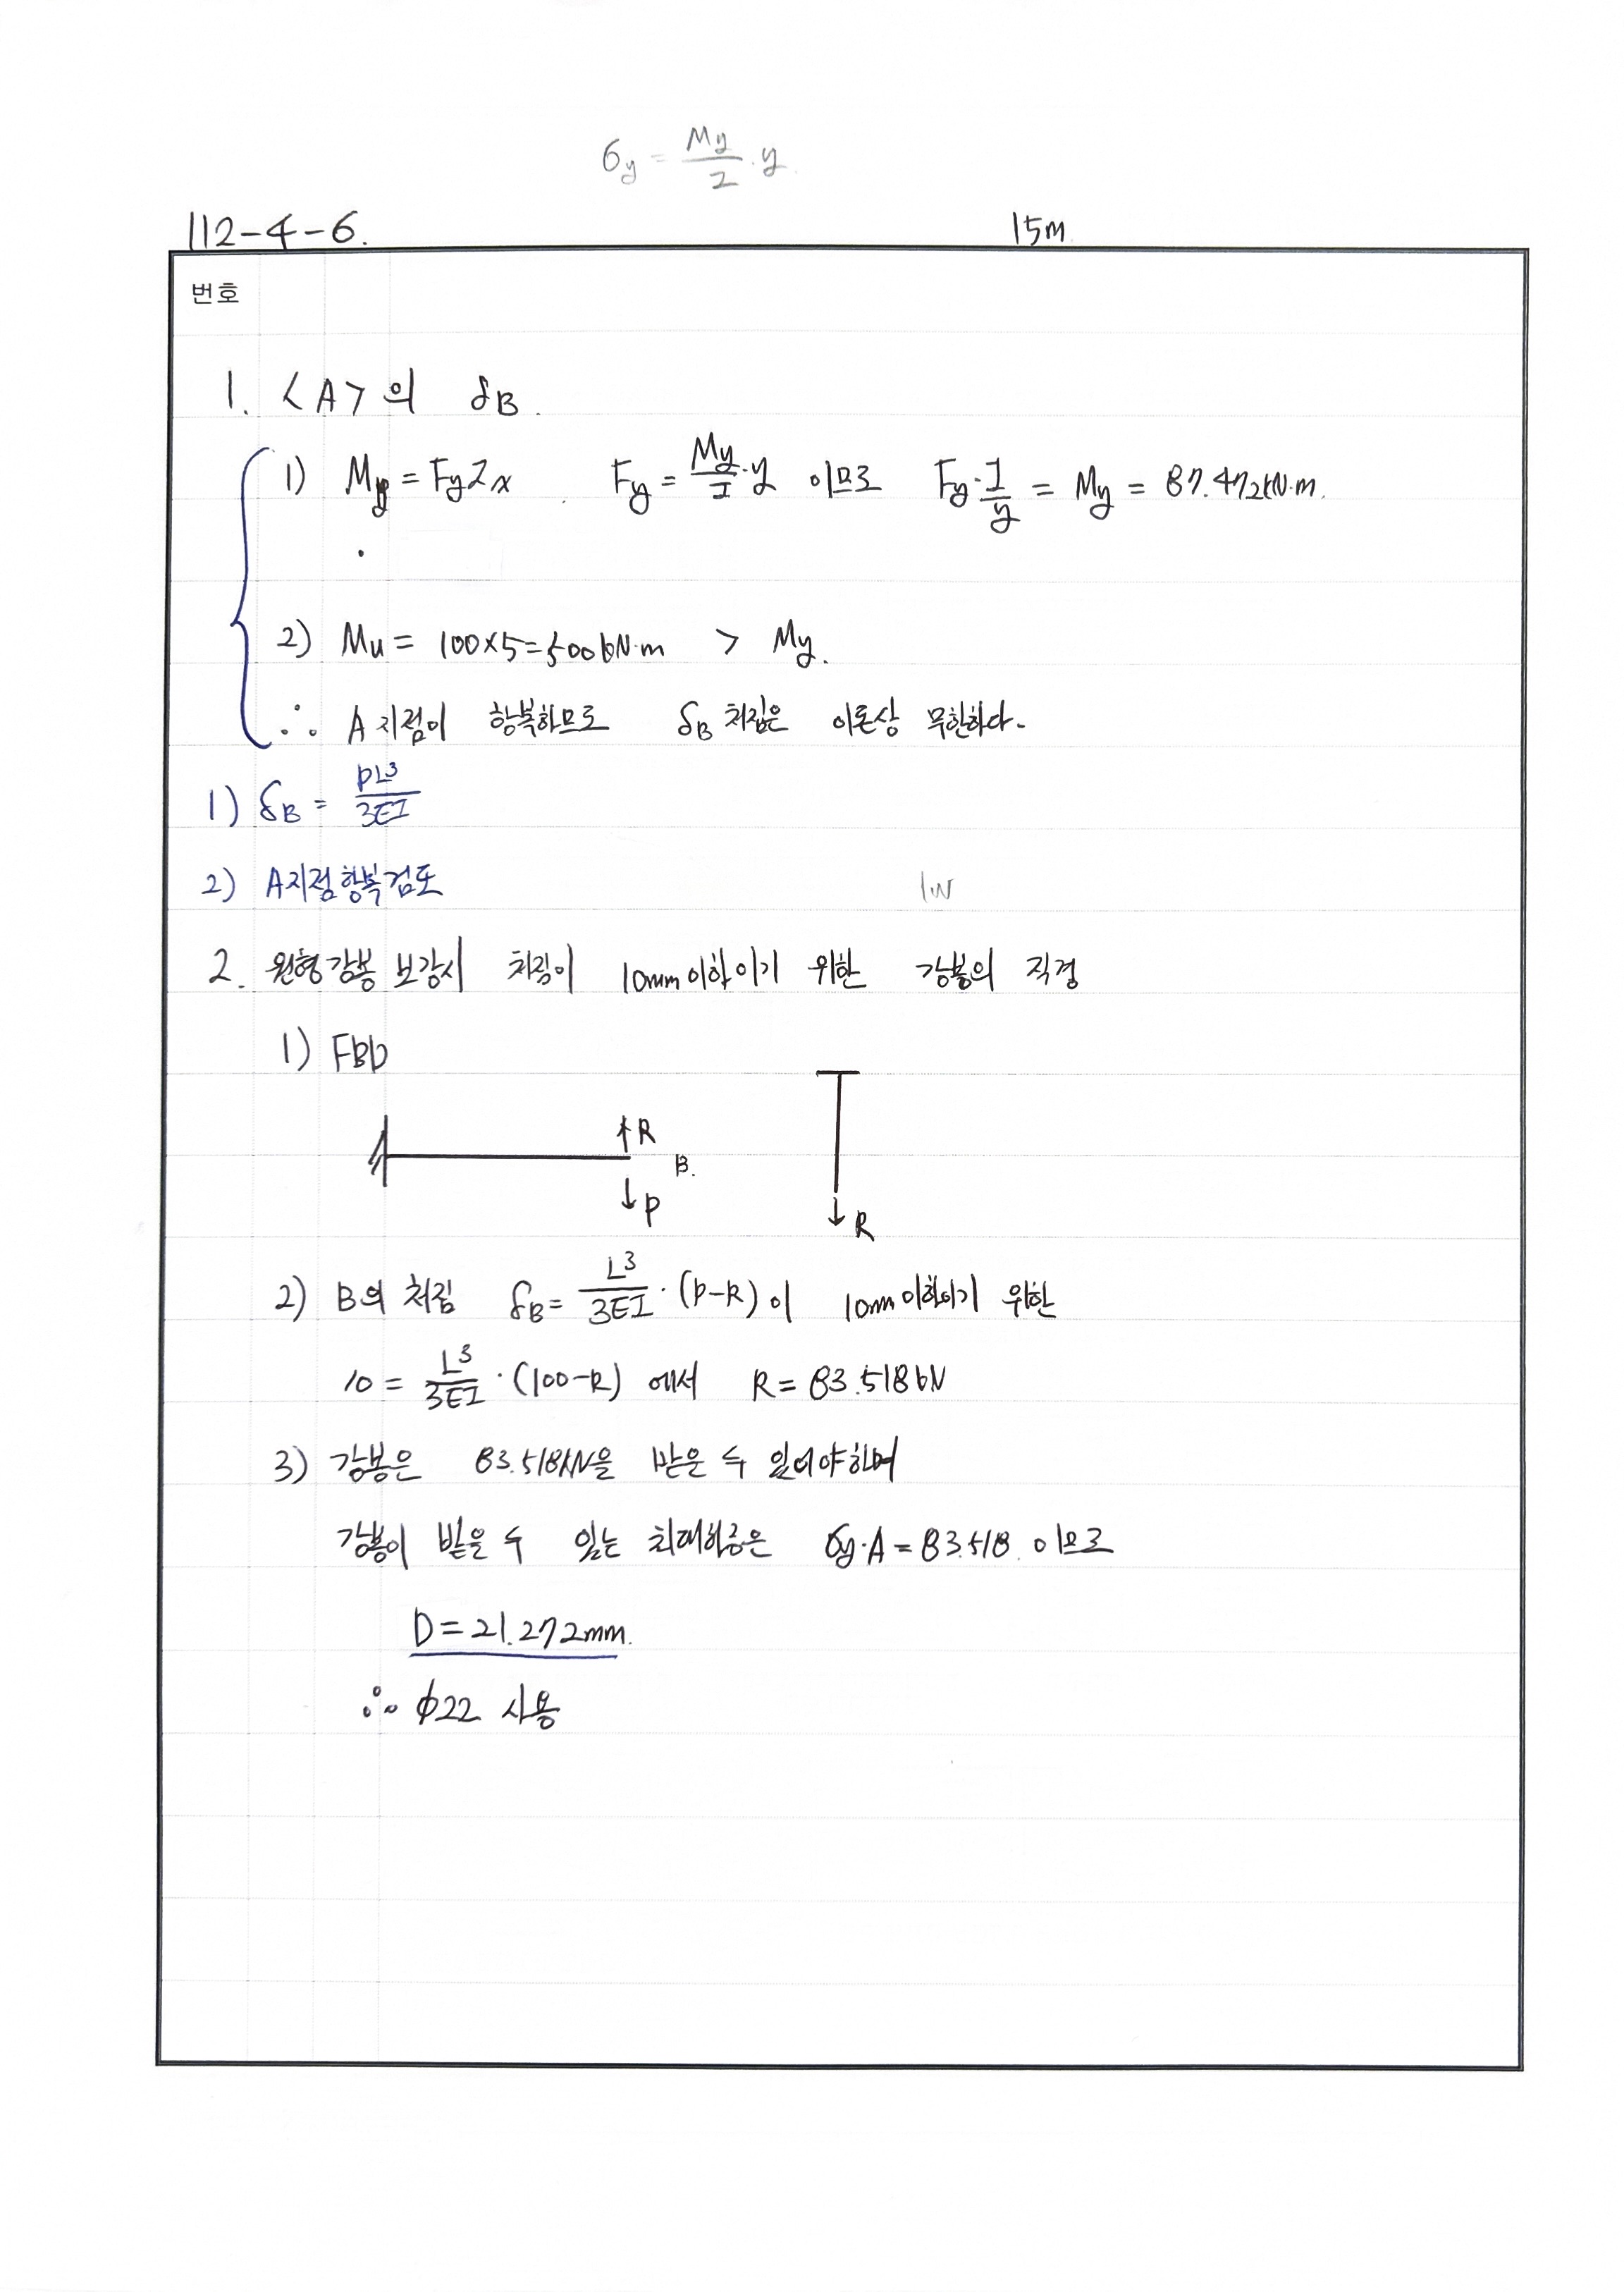 σy = My/I · y
112-4-6. 15m
번호
1. <A>의 δB.
1) My = FyZx . Fy = My/I · y 이므로 Fy · I/y = My = 87.472kN·m.
2) Mu = 100×5=500kN·m > My.
∴ A지점이 항복하므로 δB 처짐은 이론상 무한하다.
1) δB = PL³/3EI
2) A지점항복검토
2. 원형강봉 보강시 처짐이 10mm이하이기 위한 강봉의 직경
1) FBD
R
B.
P
R
2) B의 처짐 δB = L³/3EI · (P-R)이 10mm이하이기 위한
10 = L³/3EI · (100-R) 에서 R = 83.518kN
3) 강봉은 83.518kN을 받을 수 있어야하며
강봉이 받을 수 있는 최대하중은 σy·A = 83.518 이므로
D = 21.272mm.
∴ φ22 사용